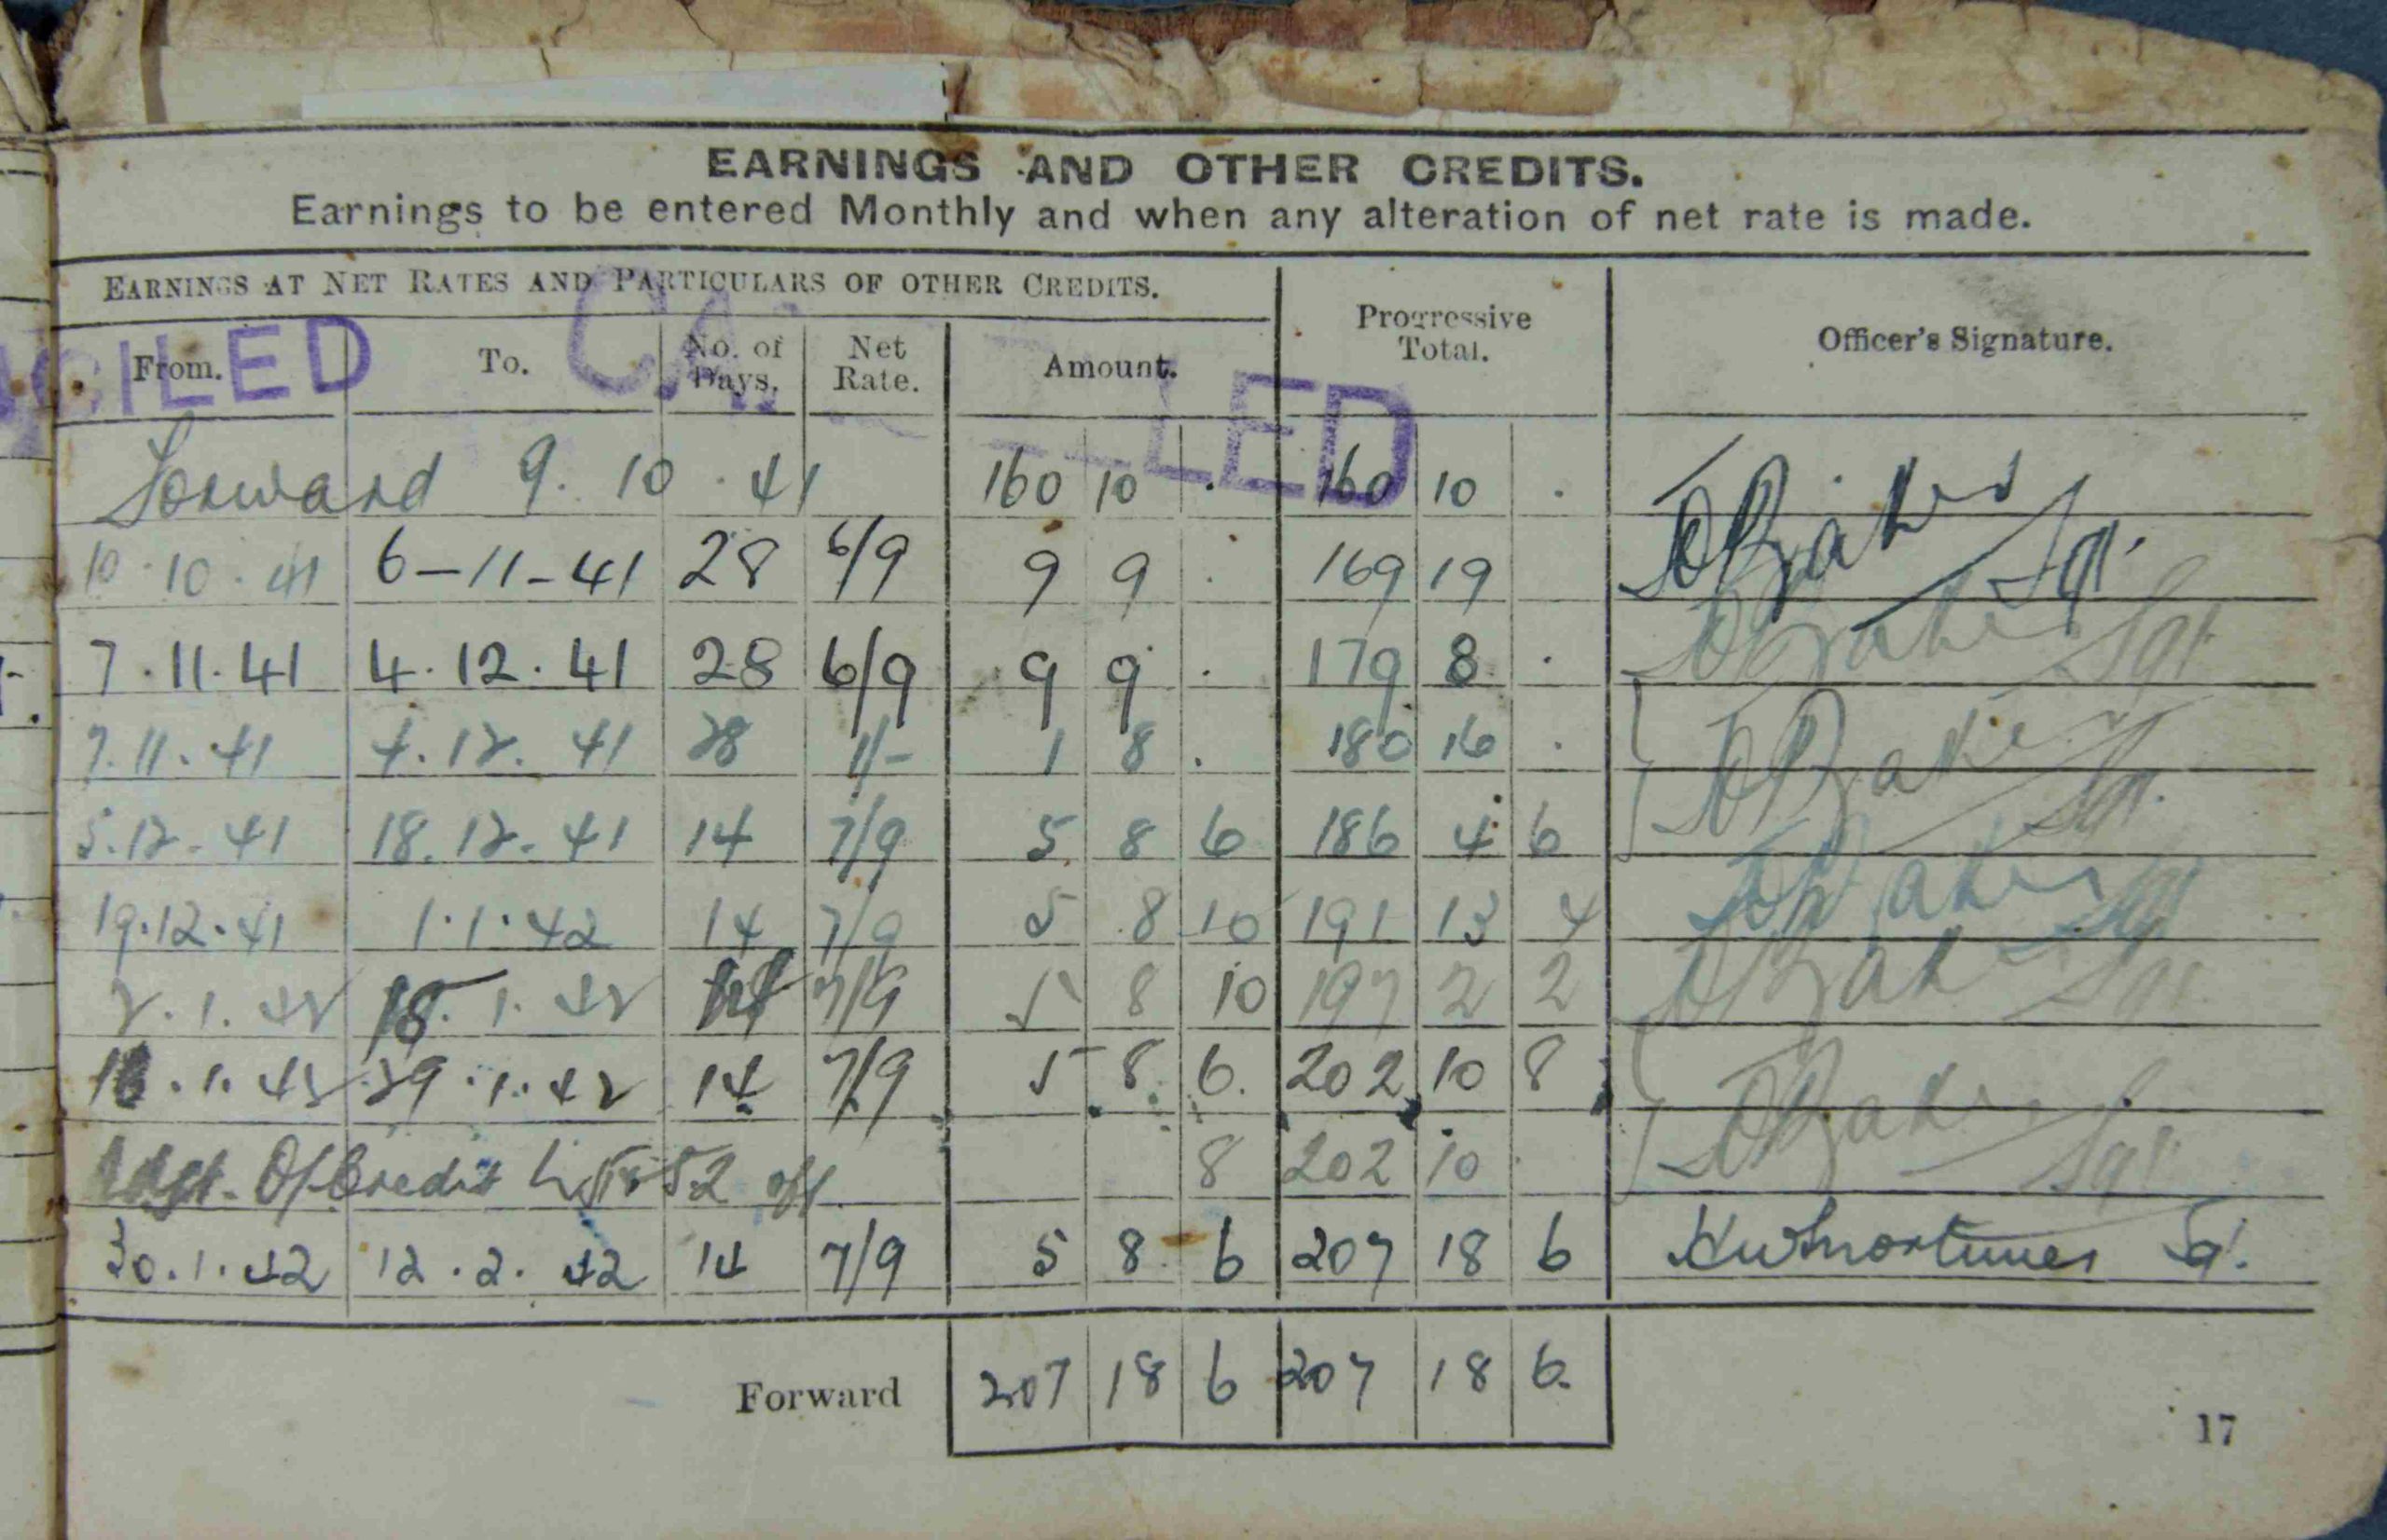 EARNINGS AND OTHER CREDITS.
Earnings to be entered Monthly and when any alteration of net rate is made.
EARNINGS AT NET RATES AND PARTICULARS OF OTHER CREDITS.
From. To. No. of Days. Net Rate. Amount. Progressive Total. Officer's Signature.
CILED CA LED
Forward 9. 10. 41 160 10 . 160 10 .
10. 10. 41 6-11-41 28 6/9 9 9 . 169 19 Sgt.
7. 11. 41 4. 12. 41 28 6/9 9 9 . 179 8 . Sgt
7. 11. 41 4. 12. 41 28 1/- 1 8 . 180 16 .
5. 12. 41 18. 12. 41 14 7/9 5 8 6 186 4 6 Sgt.
19. 12. 41 1. 1. 42 14 7/9 5 8 10 191 13 4 Sgt
2. 1. 42 15. 1. 42 14 7/9 5 8 10 197 2 2 Sgt.
16. 1. 42 29. 1. 42 14 7/9 5 8 6. 202 10 8
Adjt. Of Credit 52 off 8 202 10 . Sgt
30. 1. 42 12. 2. 42 14 7/9 5 8 6 207 18 6
Forward 207 18 6 207 18 6.
17